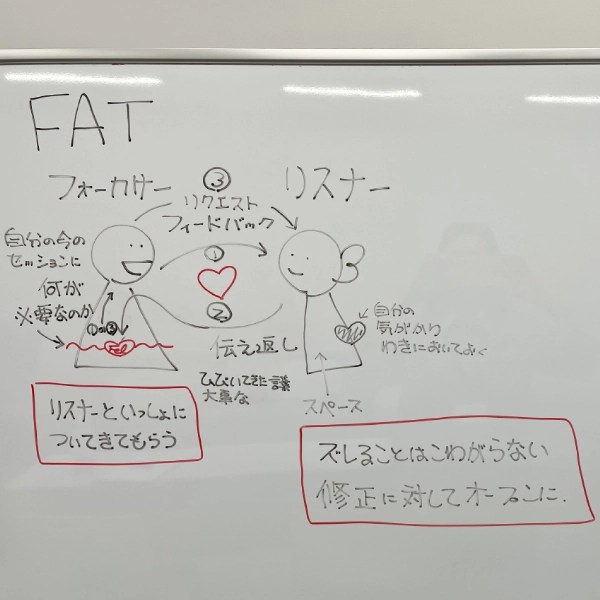 FAT
フォーカサー
③
リスナー
リクエスト
フィードバック
自分の今の
セッションに
何が
※必要なのか
①
②
伝え返し
ひびいてきた言葉
大事な
自分の
気がかり
わきにおいておく
スペース
リスナーといっしょに
ついてきてもらう
ズレることはこわがらない
修正に対してオープンに.